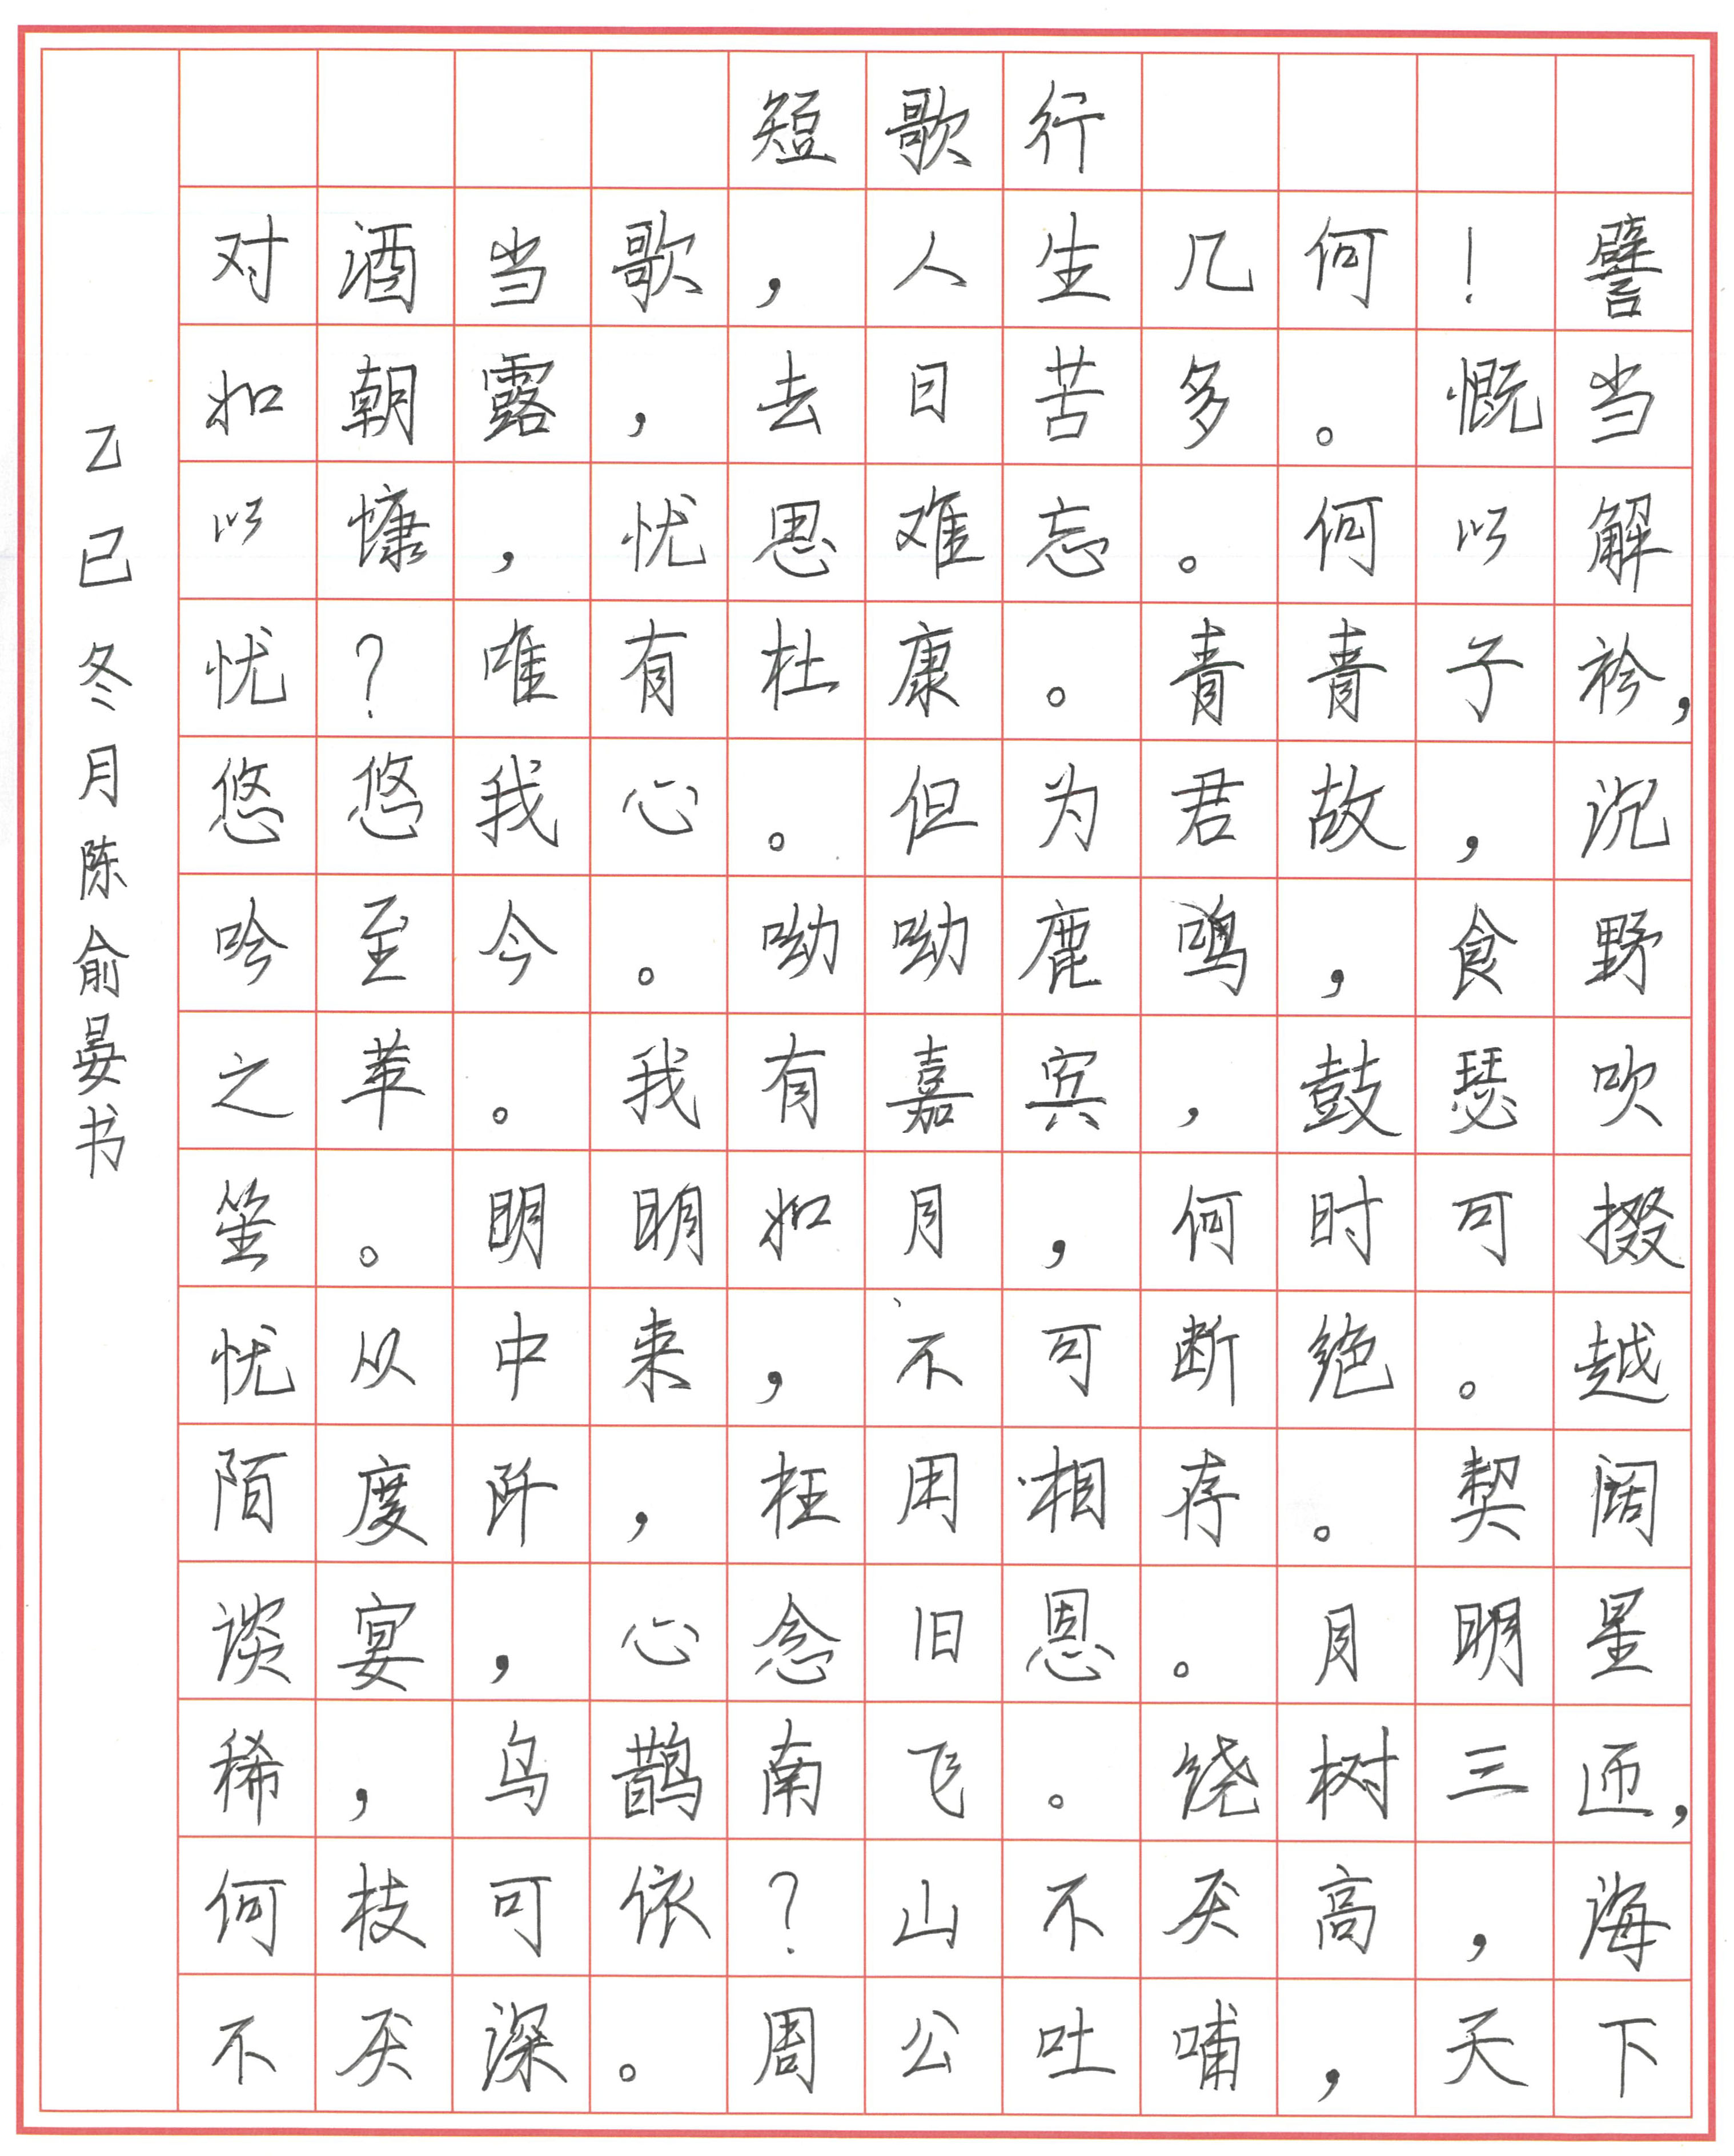 短歌行
对酒当歌，人生几何！譬
如朝露，去日苦多。慨当
以慷，忧思难忘。何以解
忧？唯有杜康。青青子衿，
悠悠我心。但为君故，沉
吟至今。呦呦鹿鸣，食野
之苹。我有嘉宾，鼓瑟吹
笙。明明如月，何时可掇
忧从中来，不可断绝。越
陌度阡，枉用相存。契阔
谈宴，心念旧恩。月明星
稀，乌鹊南飞。绕树三匝，
何枝可依？山不厌高，海
不厌深。周公吐哺，天下
乙巳冬月陈俞晏书